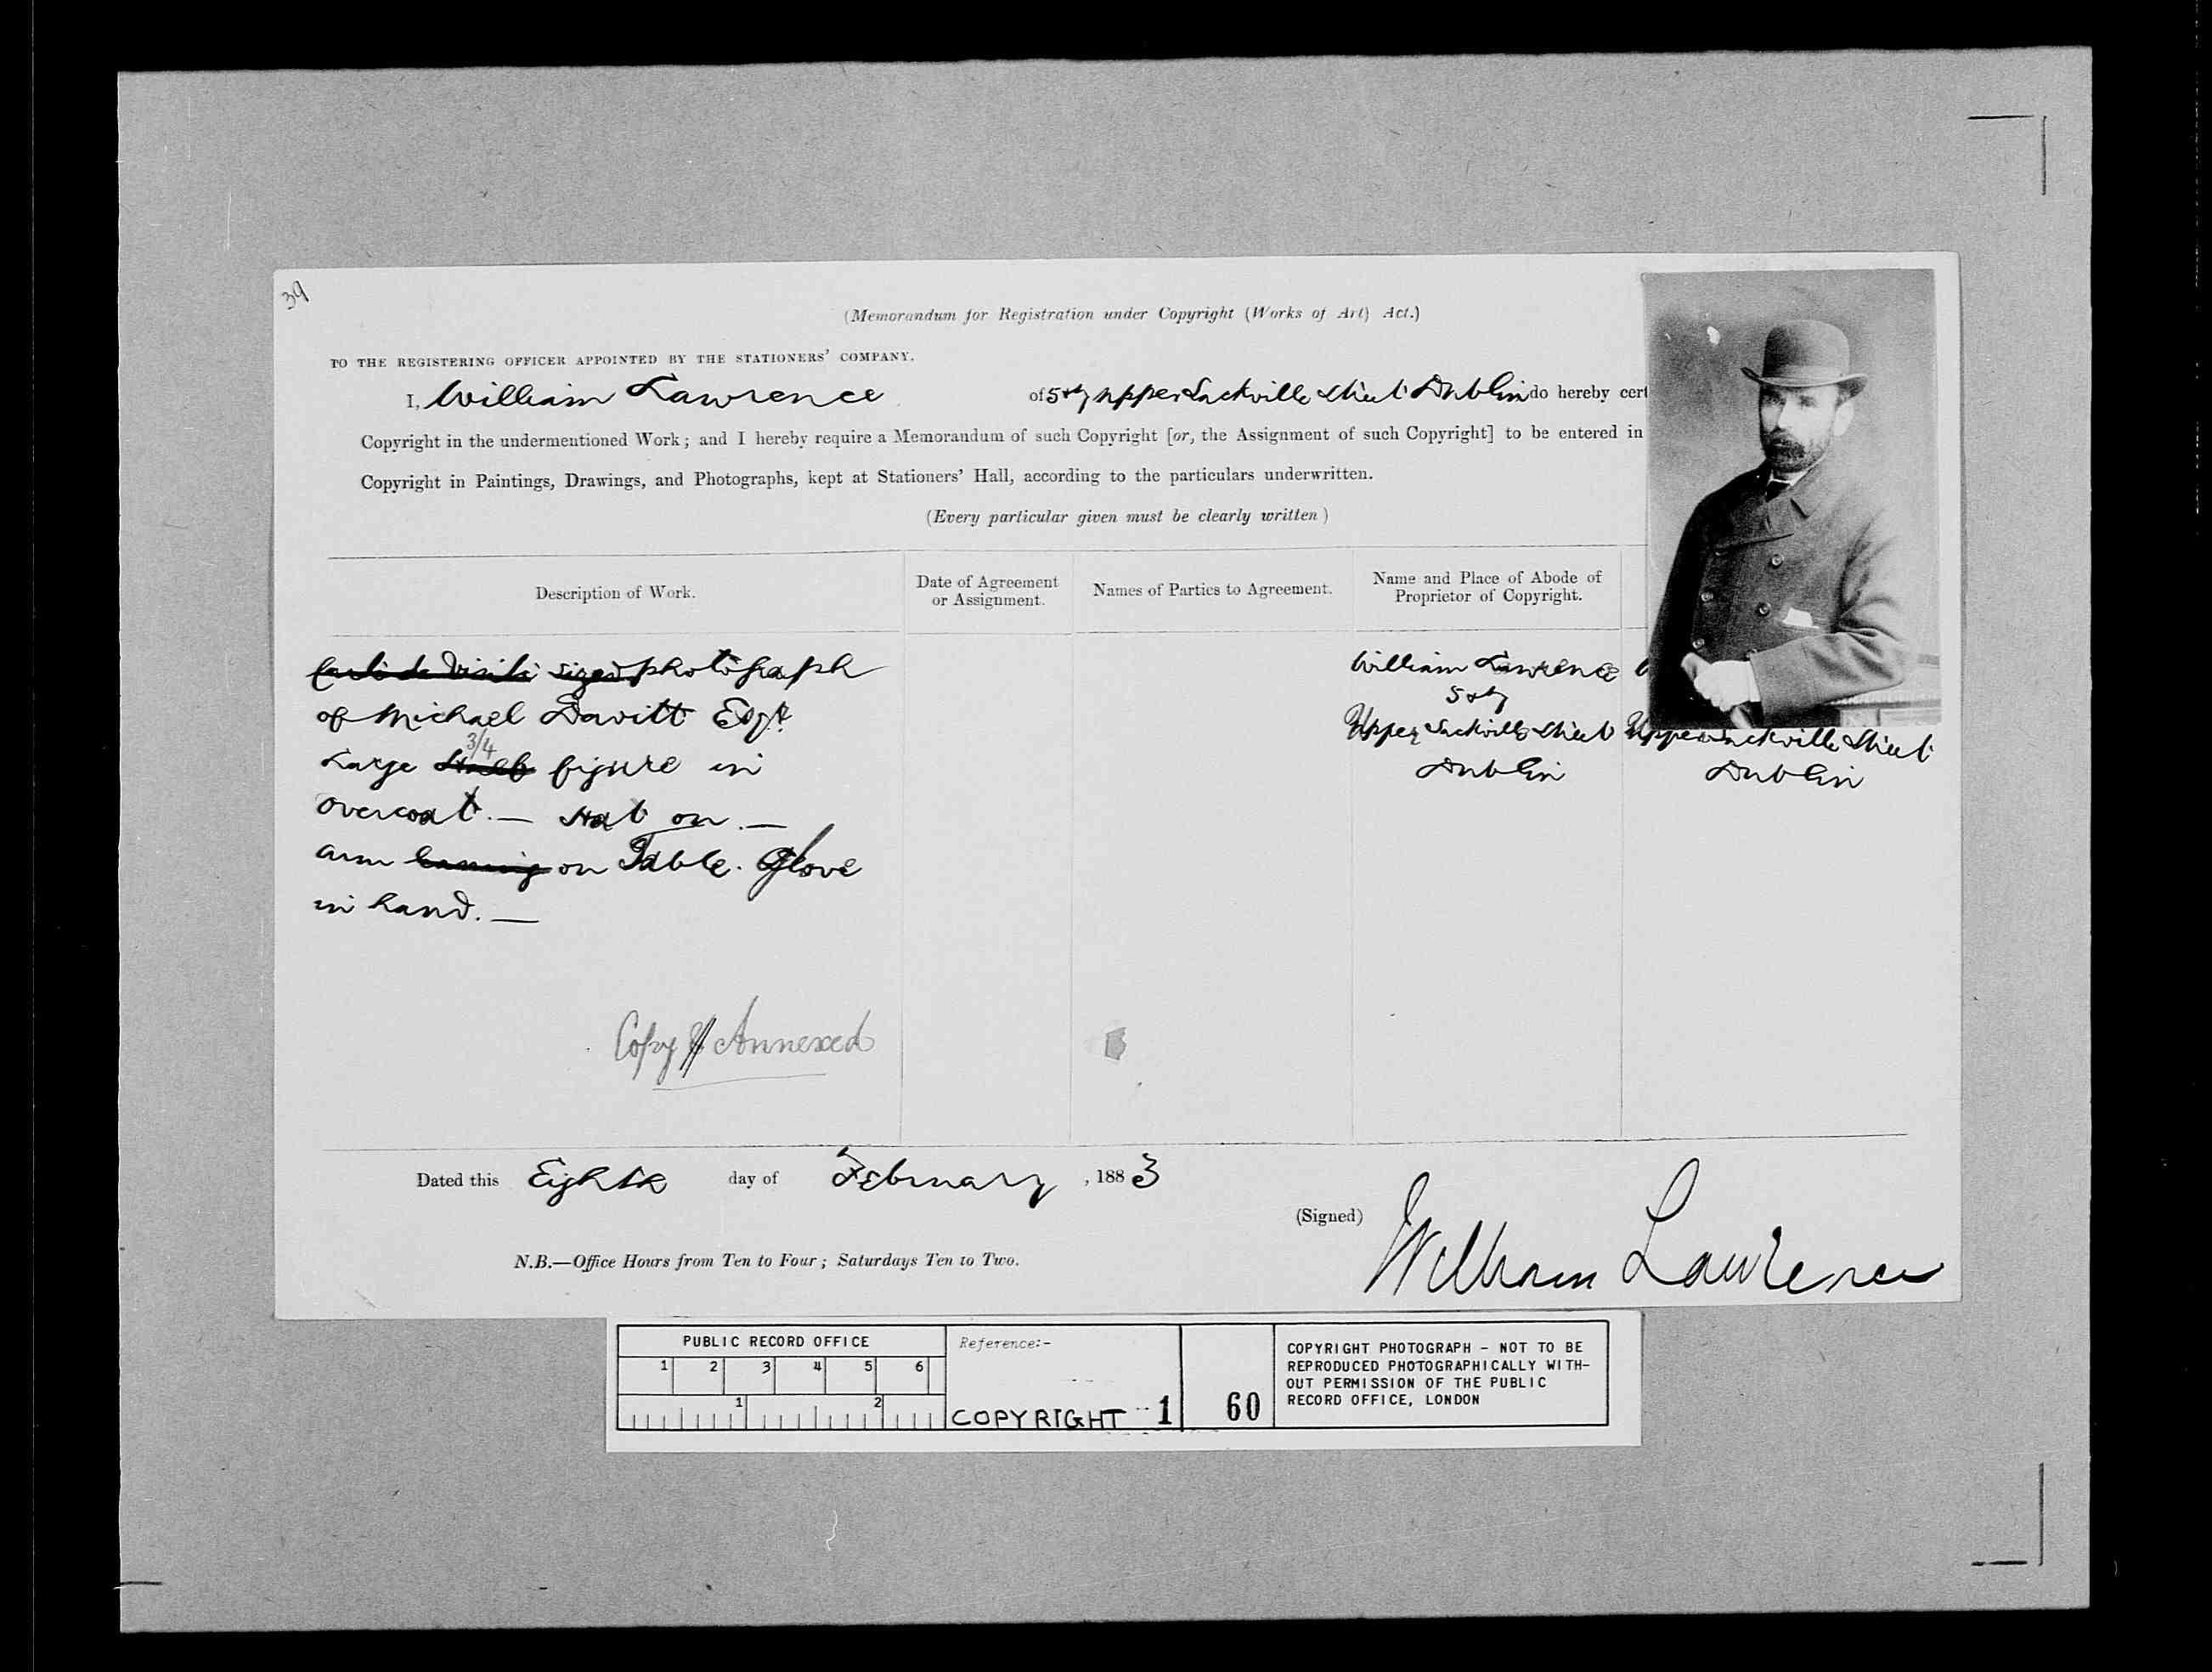 39
(Memorandum for Registration under Copyright (Works of Art) Act.)
TO THE REGISTERING OFFICER APPOINTED BY THE STATIONERS' COMPANY.
I, William Lawrence of 5 & 7 Upper Sackville Street Dublin do hereby cert
Copyright in the undermentioned Work; and I hereby require a Memorandum of such Copyright [or, the Assignment of such Copyright] to be entered in
Copyright in Paintings, Drawings, and Photographs, kept at Stationers' Hall, according to the particulars underwritten.
(Every particular given must be clearly written)
Description of Work.
Date of Agreement
or Assignment.
Names of Parties to Agreement.
Name and Place of Abode of
Proprietor of Copyright.
Carte de Visite sized photograph
of Michael Davitt Esqr.
3/4
Large Half figure in
overcoat. — Hat on. —
arm leaning on Table. Glove
in hand. —
Copy Annexed
William Lawrence
5 & 7
Upper Sackville Street
Dublin
Upper Sackville Street
Dublin
Dated this Eighth day of February, 1883
(Signed) William Lawrence
N.B.—Office Hours from Ten to Four; Saturdays Ten to Two.
PUBLIC RECORD OFFICE
1 2 3 4 5 6
1 2
Reference:-
COPYRIGHT 1 60
COPYRIGHT PHOTOGRAPH - NOT TO BE
REPRODUCED PHOTOGRAPHICALLY WITH-
OUT PERMISSION OF THE PUBLIC
RECORD OFFICE, LONDON